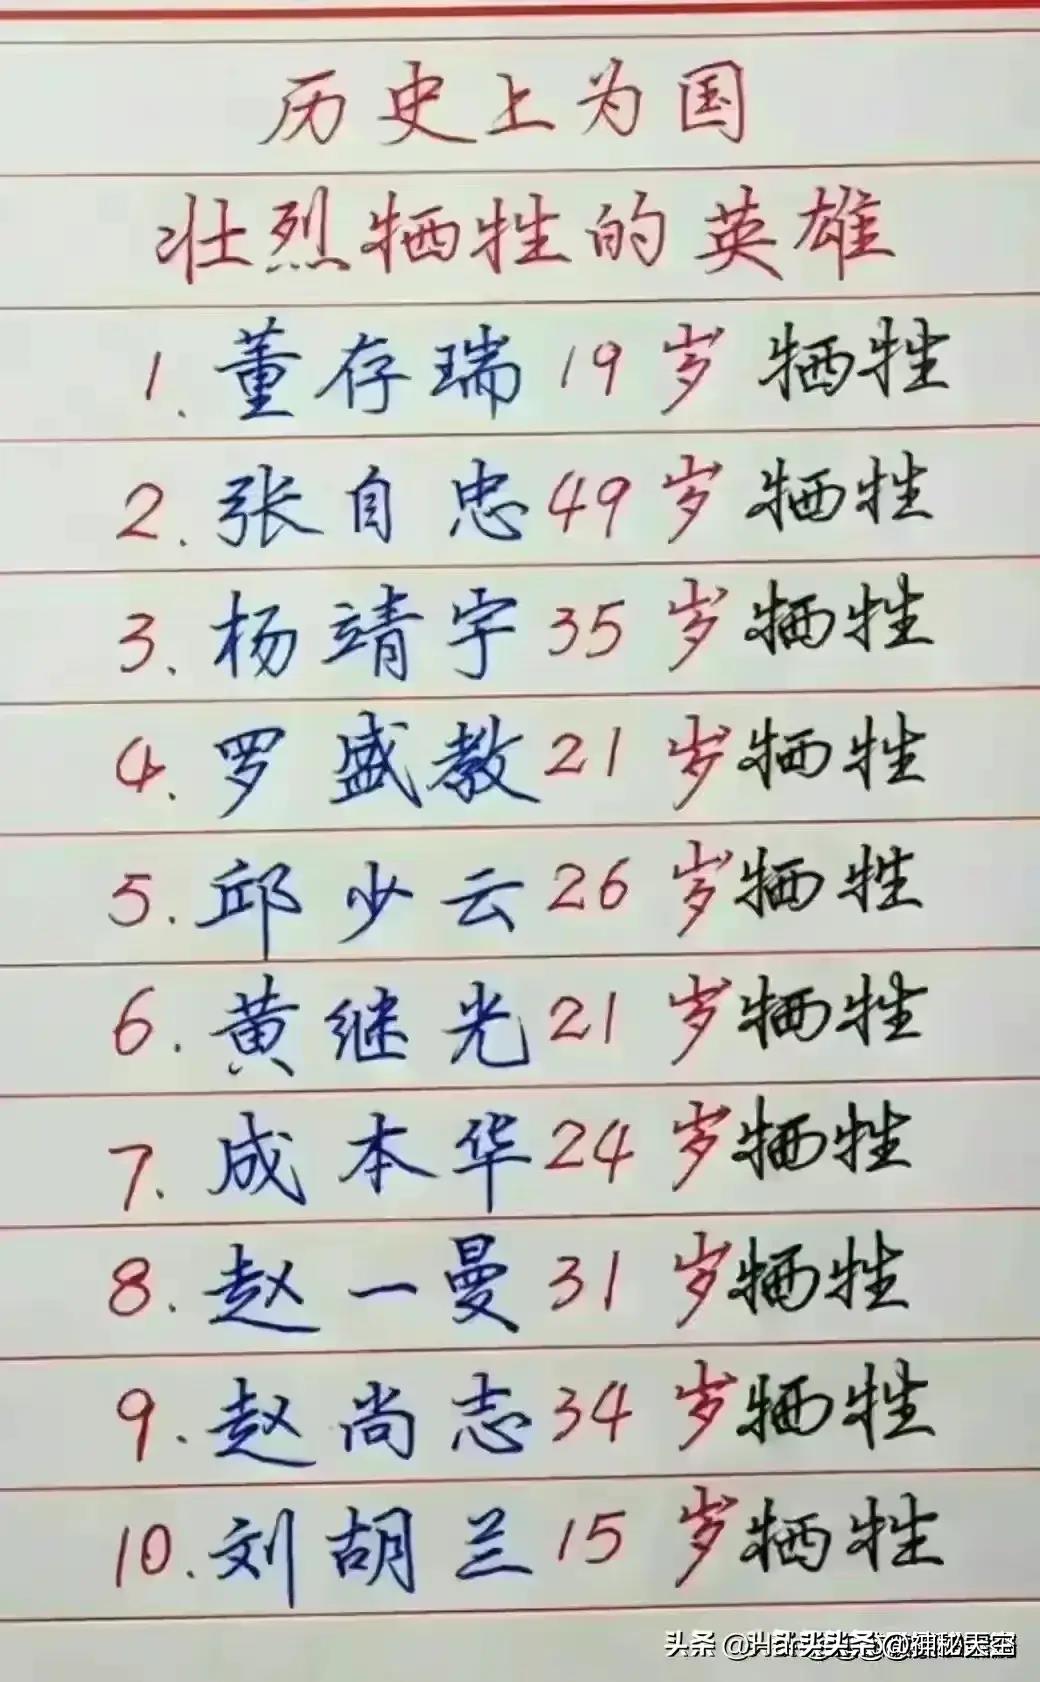 历史上为国
壮烈牺牲的英雄
1.董存瑞19岁牺牲
2.张自忠49岁牺牲
3.杨靖宇35岁牺牲
4.罗盛教21岁牺牲
5.邱少云26岁牺牲
6.黄继光21岁牺牲
7.成本华24岁牺牲
8.赵一曼31岁牺牲
9.赵尚志34岁牺牲
10.刘胡兰15岁牺牲
头条 @神秘天空